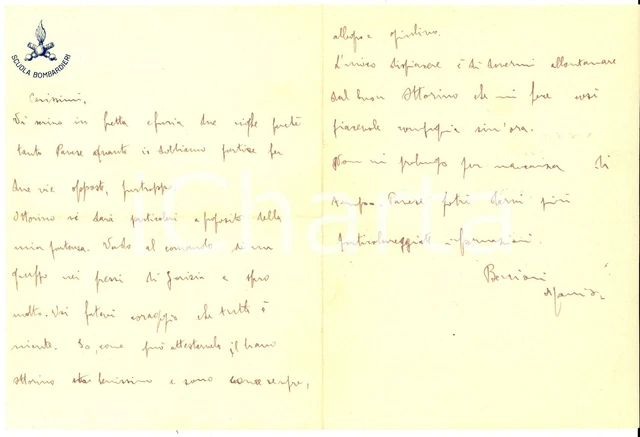 SCUOLA BOMBARDIERI
Carissimi,
Vi scrivo in fretta e furia due righe perché
tanto Parese quanto io dobbiamo partire per
due vie opposte, purtroppo
Ottorino vi darà particolari a proposito della
mia partenza. Vado al comando di un
gruppo nei pressi di Gorizia e spero
molto. Voi fatevi coraggio che tutto è
niente. Io, come può attestarvelo il bravo
Ottorino sto benissimo e sono come sempre,
allegro e
L'unico dispiacere è di dovermi allontanare
dal buon Ottorino che mi fece così
piacevole compagnia sin'ora.
Non mi prolungo per mancanza di
tempo. Parese potrà darvi più
particolareggiate informazioni.
Bacioni
iCharta